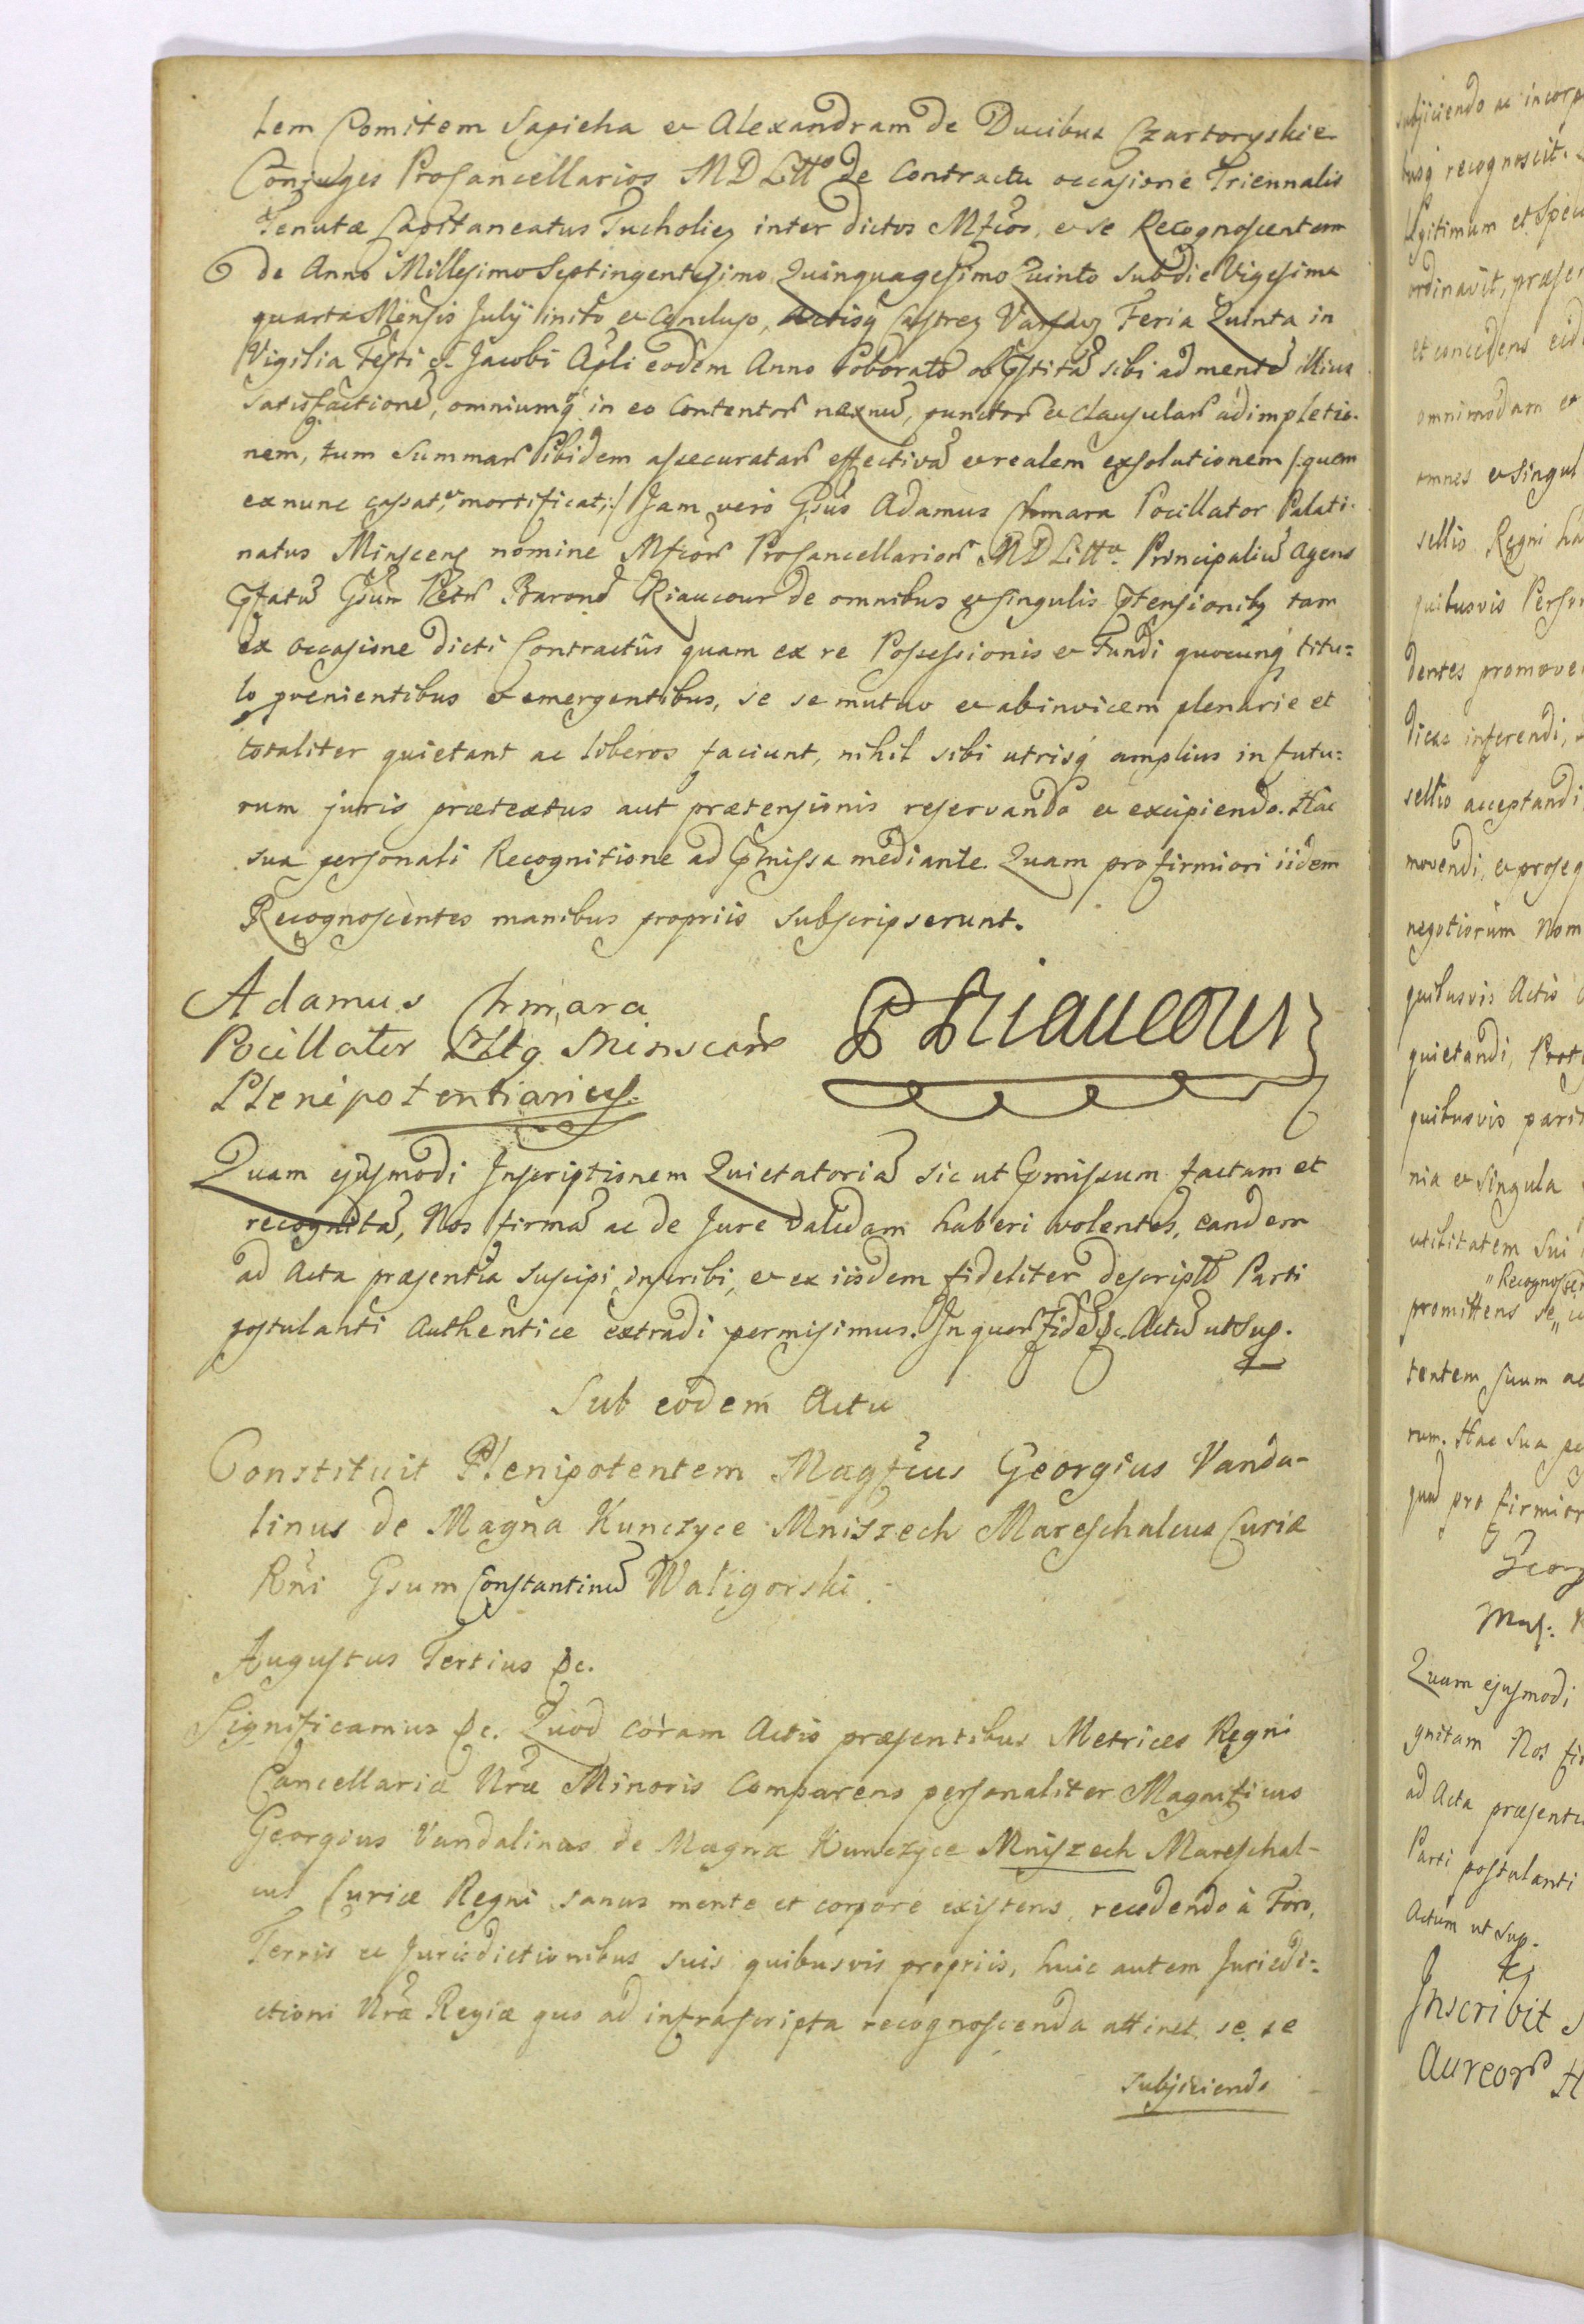 tem Comitem Sapieha et Alexandram de Ducibus Czartoryskie
Conjuges ProCancellarios M D Litt° de Contractu occasione Triennalis
Tenutæ Capitaneatus Tucholien inter dictos Mfcos, et se Recognoscentem
de Anno Millesimo Septingentesimo Quinquagesimo Quinto sub die Vigesima
quarta Mensis Julÿ inito et concluso, Actisq Castren Varsavien Feria Quinta in
Vigilia Festi S. Jacobi Apli eodem Anno roborato ob pstitã sibi ad mentẽ illius
satisfactionẽ, omniumq in eo contentor nexuũ, punctor et clausular adimpletio-
nem, tum Summar ibidem assecuratar effectivã et realem exsolutionem /:quem
ex nunc cassat, et mortificat:/ Jam vero Gsus Adamus Chmara Pocillator Palati-
natus Minscens nomine Mfcor ProCancellarior M D Litt° Principaliũ agens
pfatũ Gsum Petr Baronẽ Riaucour de omnibus et singulis ptensionibq tam
ex occasione dicti Contractûs quam ex re Possessionis et Fundi quocunq titu=
lo pvenientibus et emergentibus, se se mutuo et abinvicem plenarie et
totaliter quietant ac liberos faciunt, nihil sibi utrisq amplius in futu=
rum juris prætextus aut prætensionis reservando et excipiendo. Hac
sua personali Recognitione ad pmissa mediante. Quam pro firmiori iidem
Recognoscentes manibus propriis subscripserunt.
Adamus Chmara P Riaucour
Pocillator Pltg. Minscens
Plenipotentiarius.
Quam ejusmodi Inscriptionem Quietatoriã sic ut pmissum factam et
recognitã, Nos firmã ac de Jure validam haberi volentes, eandem
ad Acta præsentia suscipi, inscribi, et ex iisdem fideliter descriptã Parti
postulanti Authentice extradi permisimus. In quor fidẽ &c. Actũ ut sup.
Sub eodem Actu
Constituit Plenipotentem Magfcus Georgius Vanda-
linus de Magna Kunczyce Mniszech Mareschalcus Curiæ
Rni Gsum Constantinũ Waligorski.
Augustus Tertius &c.
Significamus &c. Quod coram Actis præsentibus Metrices Regni
Cancellariæ Nræ Minoris Comparens personaliter Magnificus
Georgius Vandalinus de Magna Kunczyce Mniszech Mareschal-
cus Curiæ Regni sanus mente et corpore existens, recedendo à Foro,
Terris et Jurisdictionibus suis quibusvis propriis, huic autem Jurisdi=
ctioni Nræ Regiæ quo ad infrascripta recognoscenda attinet se se
subjiciendo
subjiciendo ac incorp
busq recognoscit.
legitimum et speci
ordinavit, præsen
et concedens eid
omnimodam et
omnes et singul
sellis Regni hâ
quibusvis Person
dentes promoven
dicas inferendi,
sellio acceptandi
movendi, et proseq
negotiorum Nom
quibusvis Actis
quietandi, Prot
quibusvis paris
nia et singula
utilitatem sui
"Recognoscen
promittens se"
tentem suum ac
rum. Hac sua pe
quã pro firmior
Georg
Mas: K
Quam ejusmodi
gnitam Nos fir
ad Acta præsentia
Parti postulanti
Actum ut sup.
Inscribit
Aureor H